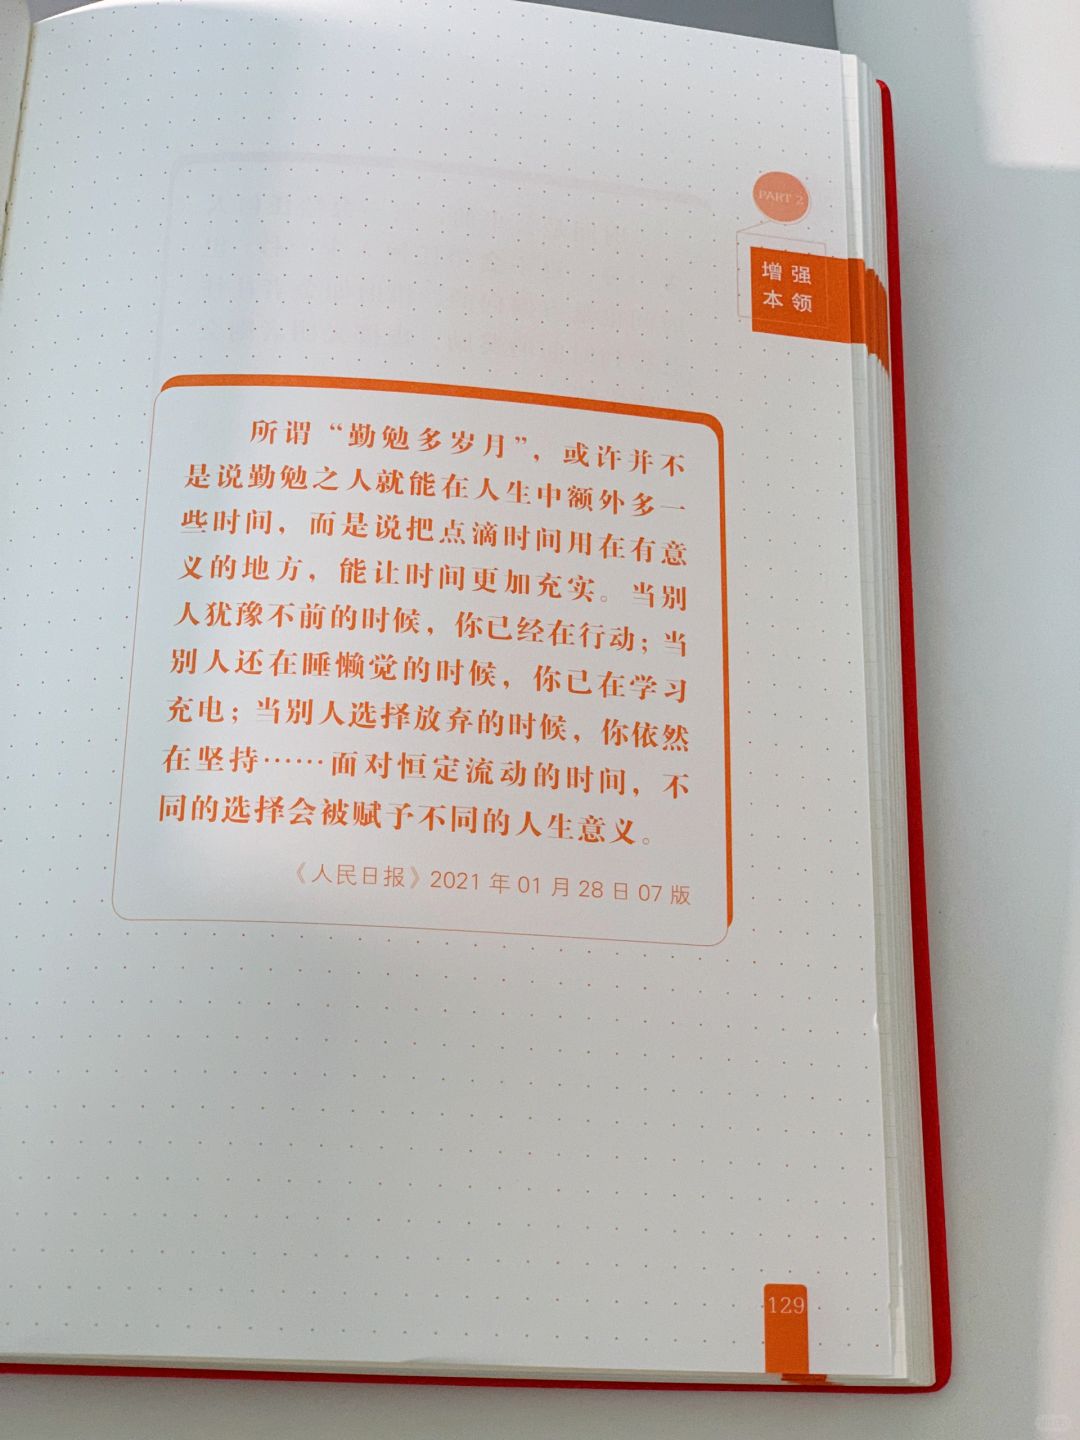 PART 2
增强
本领
所谓“勤勉多岁月”，或许并不
是说勤勉之人就能在人生中额外多一
些时间，而是说把点滴时间用在有意
义的地方，能让时间更加充实。当别
人犹豫不前的时候，你已经在行动；当
别人还在睡懒觉的时候，你已在学习
充电；当别人选择放弃的时候，你依然
在坚持……面对恒定流动的时间，不
同的选择会被赋予不同的人生意义。
《人民日报》2021 年 01 月 28 日 07 版
129